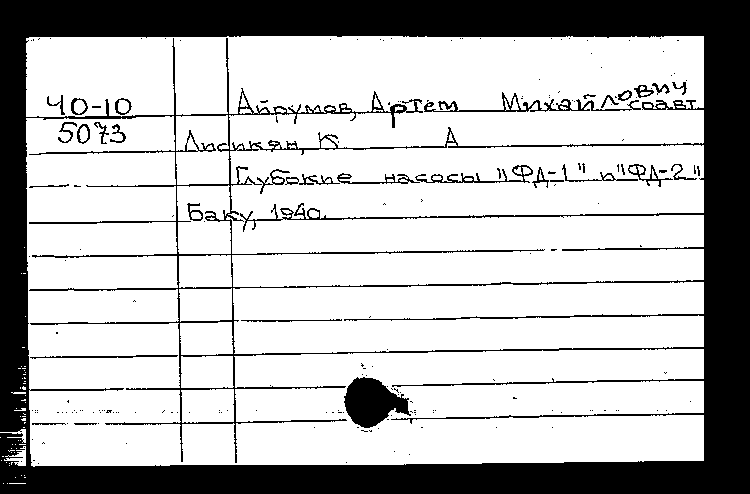 40-10
5073
Айрумов, Артем Михайлович
соавт.
Лисикян, К А
Глубокие насосы "ФД-1" и "ФД-2"
Баку, 1940.